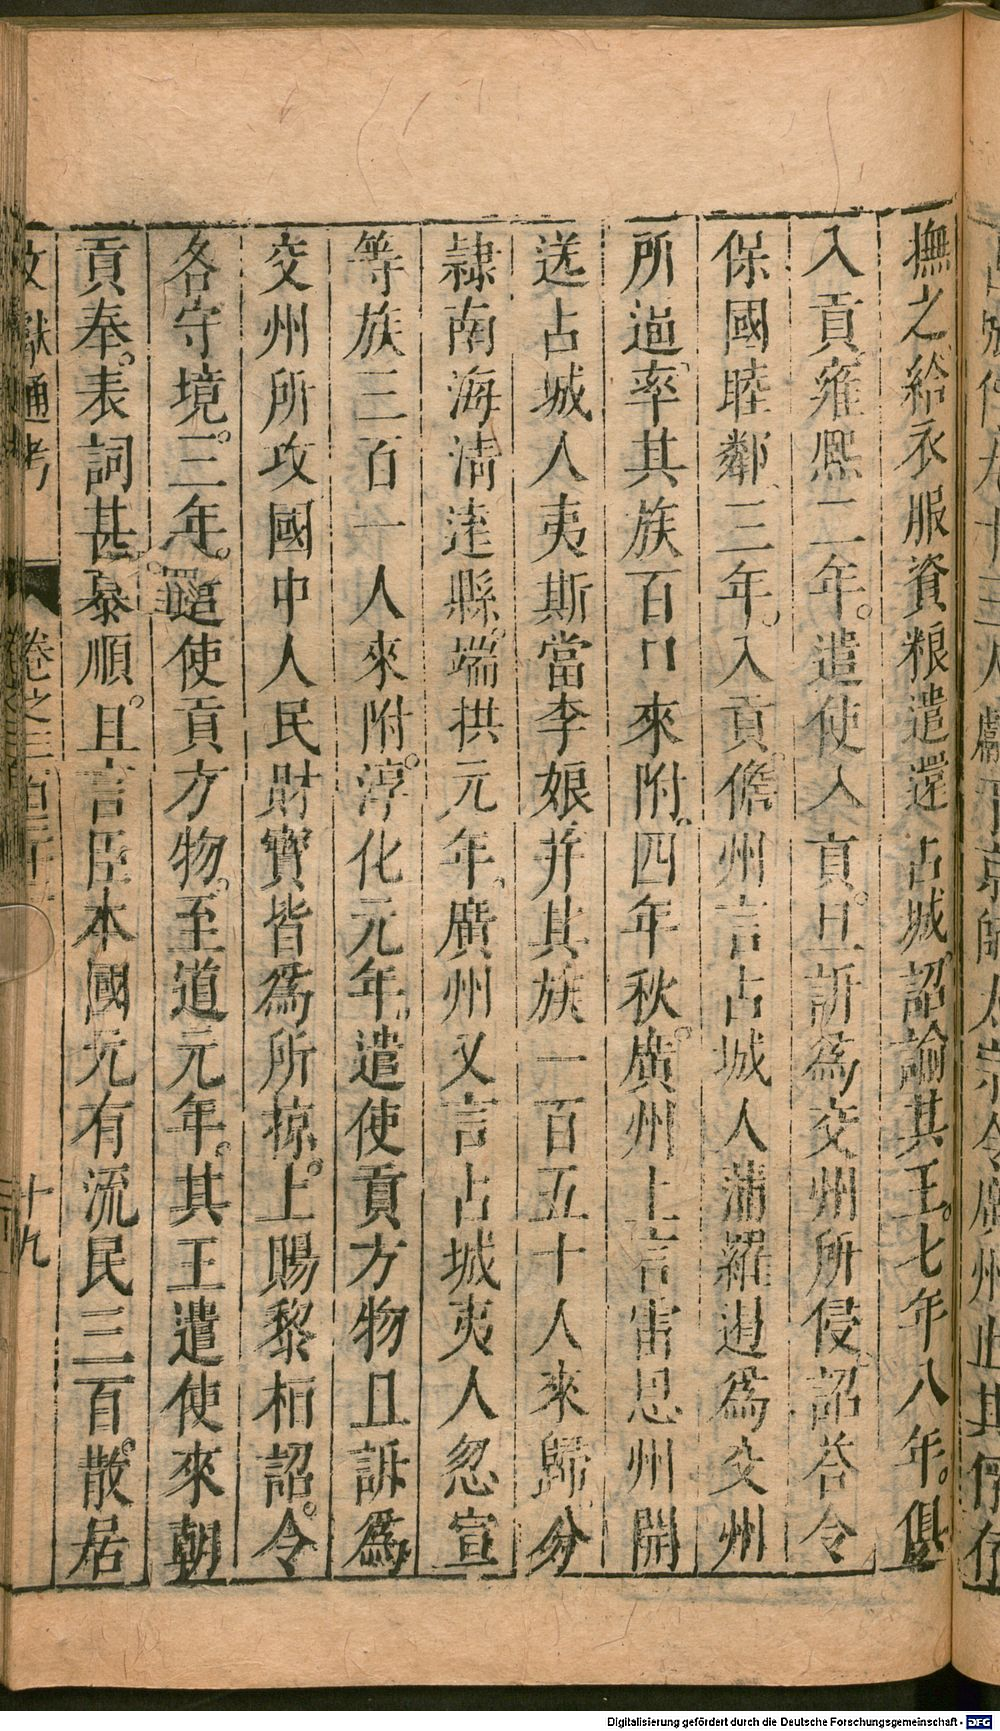 撫之給衣服資粮遣還占城詔諭其王。七年八年。俱
入貢雍熙二年。遣使入貢。且訴爲交州所侵。詔荅令
保國睦鄰三年。入貢。儋州言占城人蒲羅遏爲交州
所逼率其族百口來附四年秋。廣州上言雷恩州關
送占城人夷斯當李娘并其族一百五十人來歸分
隷南海淸逺縣。端拱元年。廣州又言占城夷人忽宣
等族三百一人來附。淳化元年。遣使貢方物且訴爲
交州所攻國中人民財寶皆爲所掠。上賜黎桓詔。令
各守境。三年。遣使貢方物。至道元年。其王遣使來朝
貢奉。表詞甚恭順。且言臣本國元有流民三百。散居
文獻通考 卷之三百三十二 十九
Digitalisierung gefördert durch die Deutsche Forschungsgemeinschaft - DFG